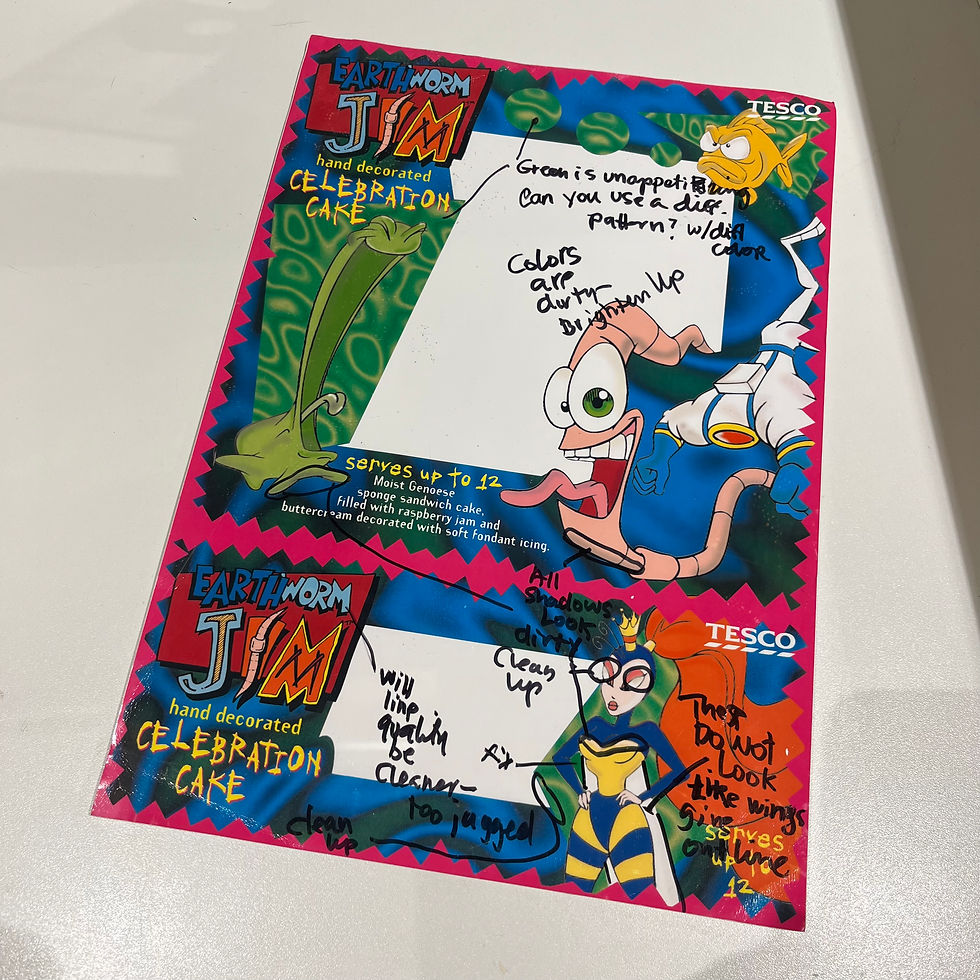 EARTHWORM
JIM
hand decorated
CELEBRATION
CAKE
TESCO
Green is unappetizing
Can you use a diff.
pattern? w/diff
color
Colors
are
dirty
Brighten Up
serves up to 12
Moist Genoese
sponge sandwich cake,
filled with raspberry jam and
buttercream decorated with soft fondant icing.
All
Shadows
Look
dirty
Clean
up
EARTHWORM
JIM
hand decorated
CELEBRATION
CAKE
TESCO
Will
line
quality
be
cleaner–
too jagged
fix
Clean
up
These
Do Not
Look
like wings
give
outline
serves
up to
12